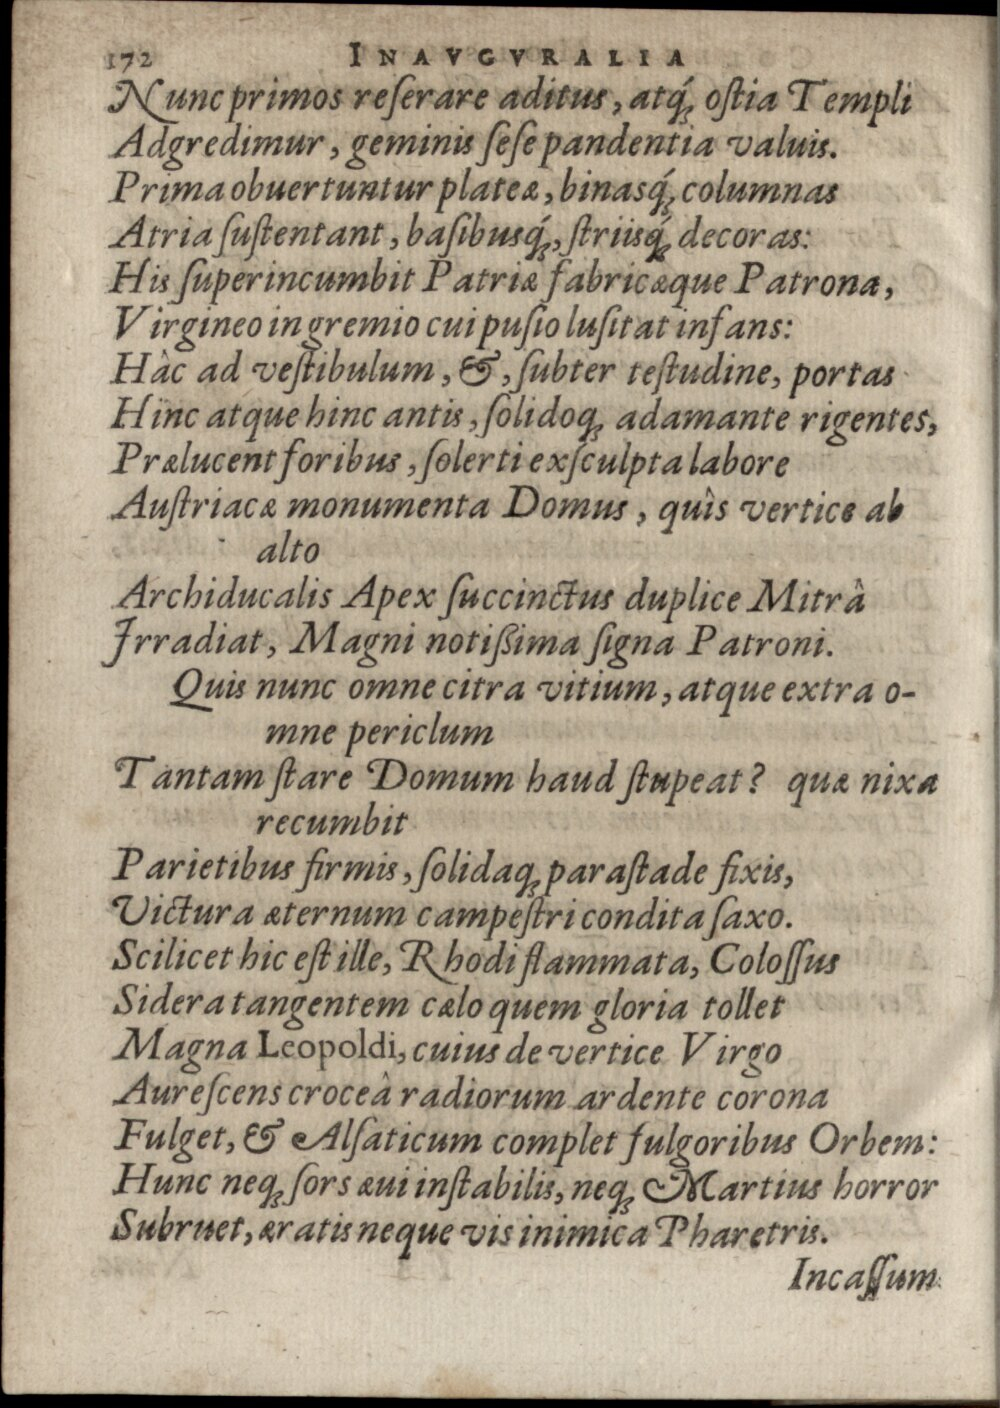 172 INAVGVRALIA
Nunc primos reſerare aditus, atq́ꝫ oſtia Templi
Adgredimur, geminis ſeſe pandentia valuis.
Prima obuertuntur plateæ, binasq́ꝫ columnas
Atria ſuſtentant, baſibusq́ꝫ, ſtriisq́ꝫ decoras:
His ſuperincumbit Patriæ fabricæque Patrona,
Virgineo in gremio cui puſio luſitat infans:
Hàc ad veſtibulum, &, ſubter teſtudine, portas
Hinc atque hinc antis, ſolidoqꝫ adamante rigentes,
Prælucent foribus, ſolerti exſculpta labore
Auſtriacæ monumenta Domus, quîs vertice ab
alto
Archiducalis Apex ſuccinctus duplice Mitrâ
Irradiat, Magni notiſſima ſigna Patroni.
Quis nunc omne citra vitium, atque extra o-
mne periclum
Tantam ſtare Domum haud ſtupeat? quæ nixa
recumbit
Parietibus firmis, ſolidaqꝫ paraſtade fixis,
Victura æternum campeſtri condita ſaxo.
Scilicet hic eſt ille, Rhodi flammata, Coloſſus
Sidera tangentem cælo quem gloria tollet
Magna Leopoldi, cuius de vertice Virgo
Aureſcens croceâ radiorum ardente corona
Fulget, & Alſaticum complet fulgoribus Orbem:
Hunc neqꝫ ſors æui inſtabilis, neqꝫ Martius horror
Subruet, æratis neque vis inimica Pharetris.
Incaſſum